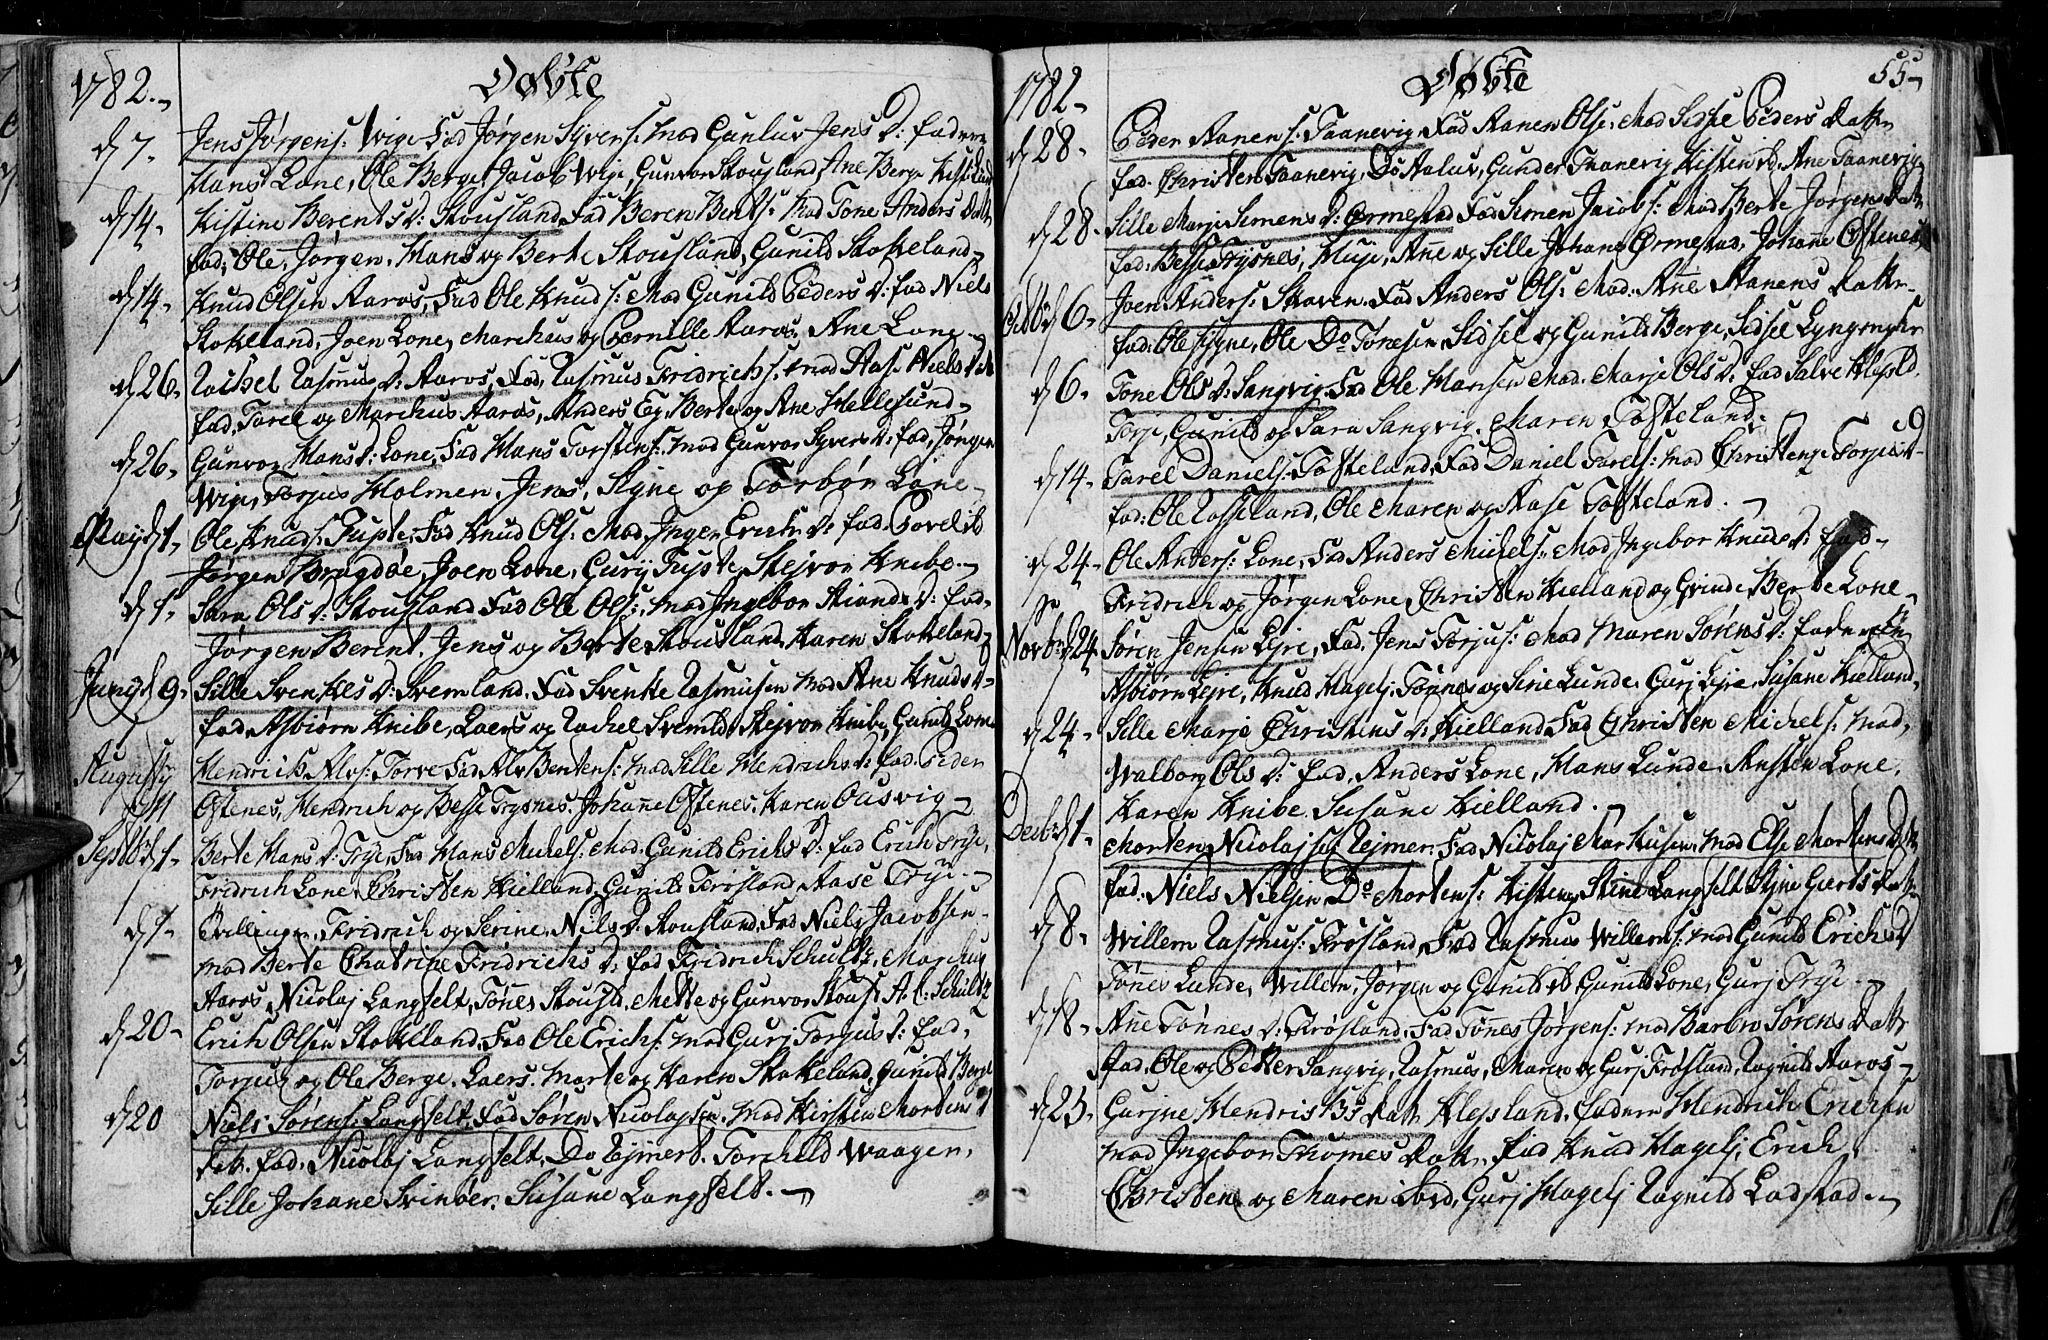 1782.
Døbte
d 7. Jens Jørgens: Wige Fad Jørgen Syvers: Mod Gunlur Jens D: fadere
Hans Lone, Ole Berge, Jacob Wige, Gunvor Skousland, Ane Berge
d 14. Kistine Berents D: Skousland Fad Beren Bents: Mod Tone Anders Datt
fad: Ole, Jørgen, Hans og Berte Skousland, Gunild Stokeland
d 14. Knud Olsen Aaros, Fad Ole Knuds: Mod Gunild Peders D: fad Niels
Stokeland, Joen Lone, Marchus og Pernille Aaros, Ane Lone
d 26. Rachel Rasmus D: Aaros, Fad, Rasmus Fridrichs: Mod Aase Niels Dtr
fad, Tarel og Marchus Aaros, Anders Eg, Berte og Ane Hellesund
d 26. Gunvor Hans D: Lone, Fad Hans Torstens: Mod Gunvor Syvers D: fad, Jørgen
Wige, Torjus Holmen, Jens, Signe og Torbør Lone
May d 1. Ole Knuds: Tupte, Fad Knud Ols: Mod, Inger Erichs D: fad. Povel ib
Jørgen Bragdøe, Joen Lone, Gurj Tupte, Skejvor Knibe
d 1. Sara Ols D: Skousland Fad Ole Ols: Mod Ingebor Stians D: fad.
Jørgen Berent, Jens og Berte Skousland, Karen Stokeland
Juny d 9. Sille Svenkes D: Svemland, Fad Svenke Rasmusen Mod Ane Knuds D
fad, Asbiørn Knibe, Laers og Rachel Svemld, Skejvor Knibe, Gunild Lone
Augusty Hendrich Alvs: Torve Fad Alv Bentsens: Mod Sille Hendrichs D: fad. Peder
d 11 Østenes, Hendrich og Besse Trysnes, Johane Østenes, Karen Ousvig
Septbr d 1. Berte Hans D: Trye, Fad Hans Michels: Mod: Gunild Erichs D: fad Erich Trye,
Fridrich Lone, Christen Kielland, Gunild Frøsland, Aase Trye
d 1. Tvillinger, Fridrich og Serine, Niels D: Skousland, Fad Niels Jacobsen
Mod Berte Chatrine Fridrichs D: fad Fridrich Schultz, Marchus
Aaros, Nicolaj Langfelt, Tønes Skousld. Mette og Gunvor Skousl A. C: Schultz
d 20. Erich Olsen Stokeland, Fad Ole Erichs: Mod Gurj Torjus D: fad.
Torjus og Ole Berge, Laers, Marte og Karen Stokeland, Gunild Berge
d 20 Niels Sørens: Langfelt, Fad Søren Nicolaysen. Mod Kirsten Mortens
Datt. fad. Nicolaj Langfelt, Do Ejmert, Torchild Waagen,
Sille Johane Svinøer, Susane Langfeld.
1782
Døbte
55
d 28. Peder Aanens: Taanevig Fad Aanen Ols: Mod Sidsel Peders Datt
fad. Christen Taanevig, Do Aalus, Gunder Taanevig, Kisten ib, Ane Taanevig
d 28. Sille Marje Simens D: Ormestad Fad Simen Jacobs: Mod Berte Jørgens Datt
fad: Besse Trysnes, Anne og Sille Johane Ormestad, Johane Østenes
Octbr d 6. Joen Anders: Skaren Fad Anders Ols: Mod: Anne Aanens Datt
fad: Ole Signe, Ole Do Tønesen, Sidsel og Gunild Berge, Sidsel
d 6. Tone Ols D: Sangvig, Fad Ole Hansen Mod. Marje Ols D: fad Salve Klepld,
Torje, Gunild og Sara Sangvig, Maren Tofteland
d 14. Tarel Daniels: Tofteland, Fad Daniel Tarels: Mod Christenze Torjus D
fad: Ole Rosseland, Ole Maren og Aase Tofteland.
d 24. Ole Anders: Lone, Fad Anders Michels: Mod Ingebor Knuds D: fad
Fridrich og Jørgen Lone, Christen Kielland og Qvinde Berte Lone
Novbr d 24 Søren Jensen Lejre, Fad. Jens Torjus: Mod Maren Sørens D: fadere
Asbiørn Lejre, Knud Hagelj, Tønnes og Sirie Lunde, Gurj Lejre, Susane Kielland,
d 24. Sille Marje Christens D: Kielland Fad Christen Michels: Mod,
Walborg Ols D: fad, Anders Lone, Hans Lunde, Austen Lone,
Karen Knibe, Susane Kielland.
Decbr d 1. Morten Nicolajsen Ejmer, Fad Nicolaj Markusen, Mod Else Mortens Dtr
fad: Niels Nielsen Do Mortens: Kisten, Stine Langfelt, Stine Gierts Dat
d 8. Willem Rasmus: Frøsland, Fad Rasmus Willems: Mod Gunild Erichs D
Tønes Lunde, Willem, Jørgen og Gunild ib, Gunild Lone, Gurj Trye
d 8. Anne Tønnes D: Frøsland, Fad Tønnes Jørgens: Mod Barbro Sørens Datt
fad, Ole og Petter Sangvig, Rasmus, Maren og Gurj Frøsland, Ragnild Aaros
d 25. Gurjne Hendrichs Datt Klepsland, fadere Hendrich Erichsen
Mod Ingebor Thomes Datt. fad Knud Hagelj, Erich
Christen og Maren ibid, Gurj Hagelj Ragnild Ladstad